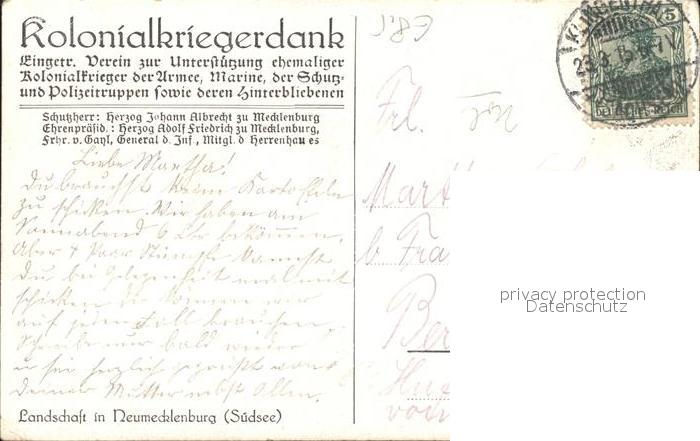 Kolonialkriegerdank
Eingetr. Verein zur Unterstützung ehemaliger
Kolonialkrieger der Armee, Marine, der Schutz-
und Polizeitruppen sowie deren Hinterbliebenen
Schutzherr: Herzog Johann Albrecht zu Mecklenburg
Ehrenpräsid.: Herzog Adolf Friedrich zu Mecklenburg,
Frhr. v. Gayl, General d. Inf., Mitgl. d Herrenhau es
Liebe Martha!
Du brauchst keine Kartoffeln
zu schicken. Wir haben am
Sonnabend 6 bekommen.
Aber 4 Paar Strümpfe kannst
Du bei Gelegenheit mal mit
schicken die können wir
auf jeden Fall brauchen
Schreibe nur bald wieder
u sei herzlich gegrüßt von
Deiner Mutter nebst Allen.
Landschaft in Neumecklenburg (Südsee)
Frl.
Mart
b Fra
Ber
5
privacy protection
Datenschutz